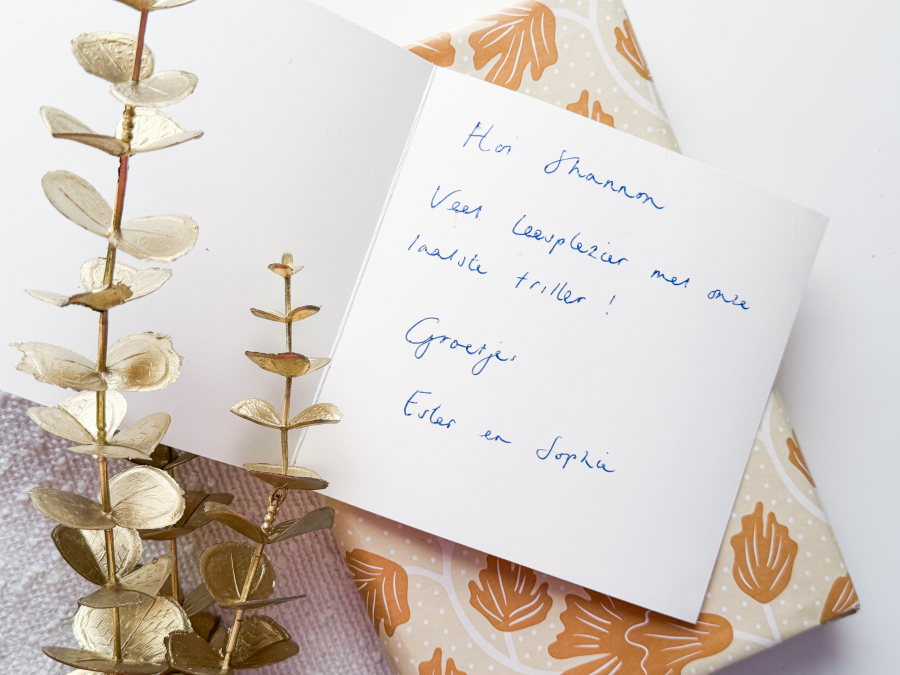 Hoi Shannon
Veel leesplezier met onze
laatste triller !
Groetjes
Ester en Sophie